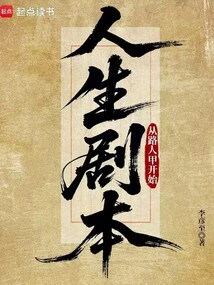 起点
起点读书
人生剧本
从路人甲开始
李彦至著